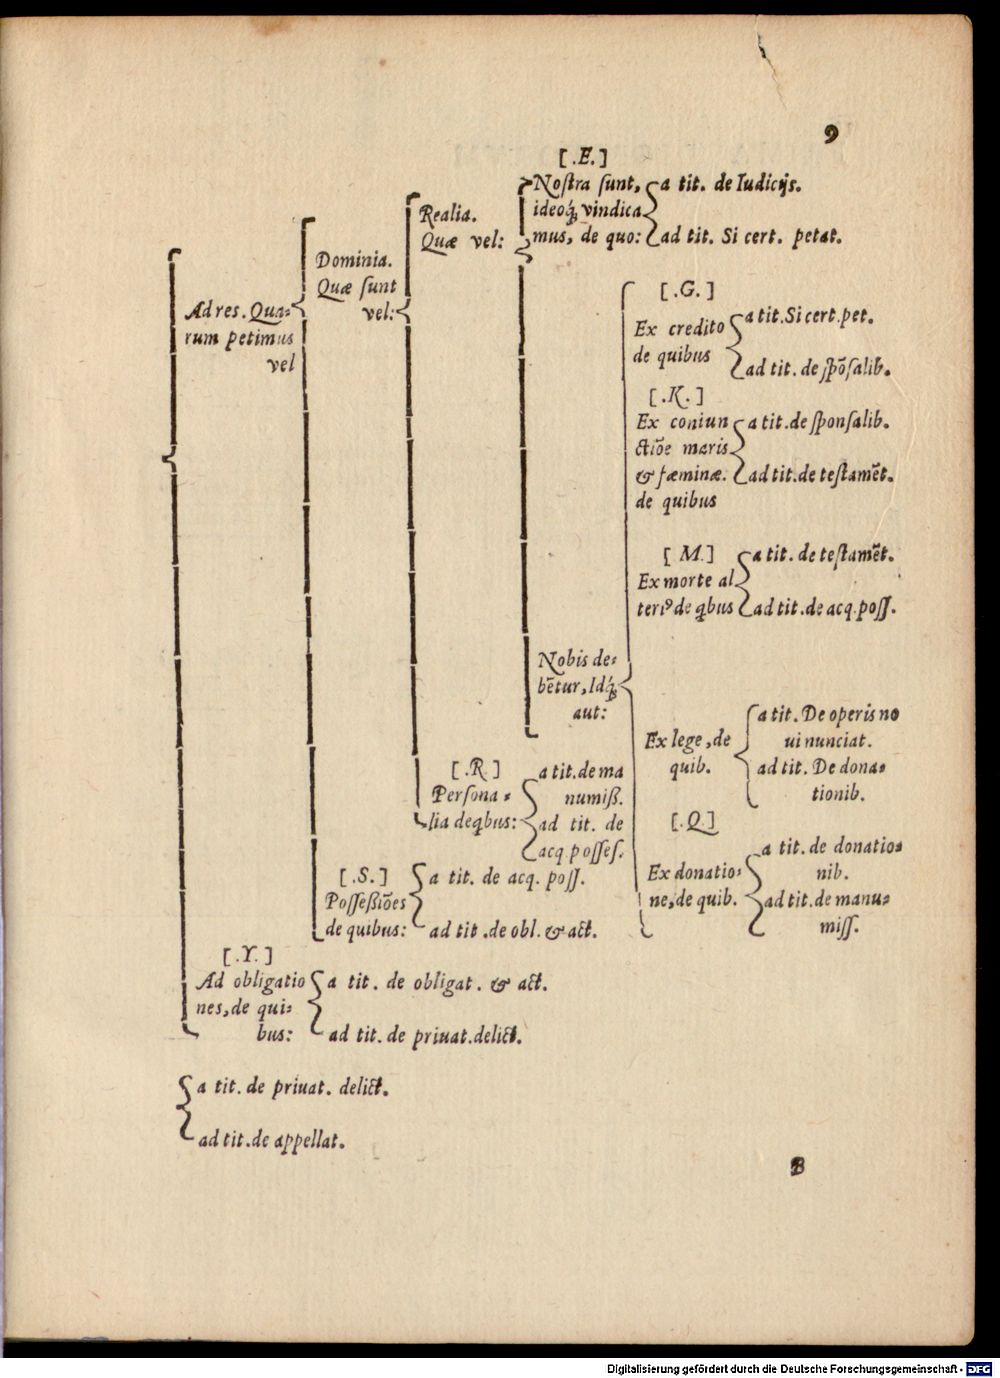 9
Ad res. Qua-
rum petimus
vel
Dominia.
Quæ ſunt
vel:
Realia.
Quæ vel:
[.E.]
Noſtra ſunt,
ideoq́; vindica
mus, de quo:
a tit. de Iudicijs.
ad tit. Si cert. petat.
Nobis de-
bētur, Idq́;
aut:
[.G.]
Ex credito
de quibus
a tit. Si cert. pet.
ad tit. de ſpōſalib.
[.K.]
Ex coniun
ctiōe maris
& fæminæ.
de quibus
a tit. de ſponſalib.
ad tit. de teſtamēt.
[M.]
Ex morte al
teriꝰ de qbus
a tit. de teſtamēt.
ad tit. de acq. poſſ.
Ex lege, de
quib.
a tit. De operis no
ui nunciat.
ad tit. De dona-
tionib.
[.Q.]
Ex donatio-
ne, de quib.
a tit. de donatio-
nib.
ad tit. de manu-
miſſ.
[.R.]
Perſona-
lia deqbus:
a tit. de ma
numiß.
ad tit. de
acq poſſeſ.
[.S.]
Poſſeßiōes
de quibus:
a tit. de acq. poſſ.
ad tit. de obl. & act.
[.Y.]
Ad obligatio
nes, de qui-
bus:
a tit. de obligat. & act.
ad tit. de priuat. delict.
a tit. de priuat. delict.
ad tit. de appellat.
B
Digitalisierung gefördert durch die Deutsche Forschungsgemeinschaft - DFG